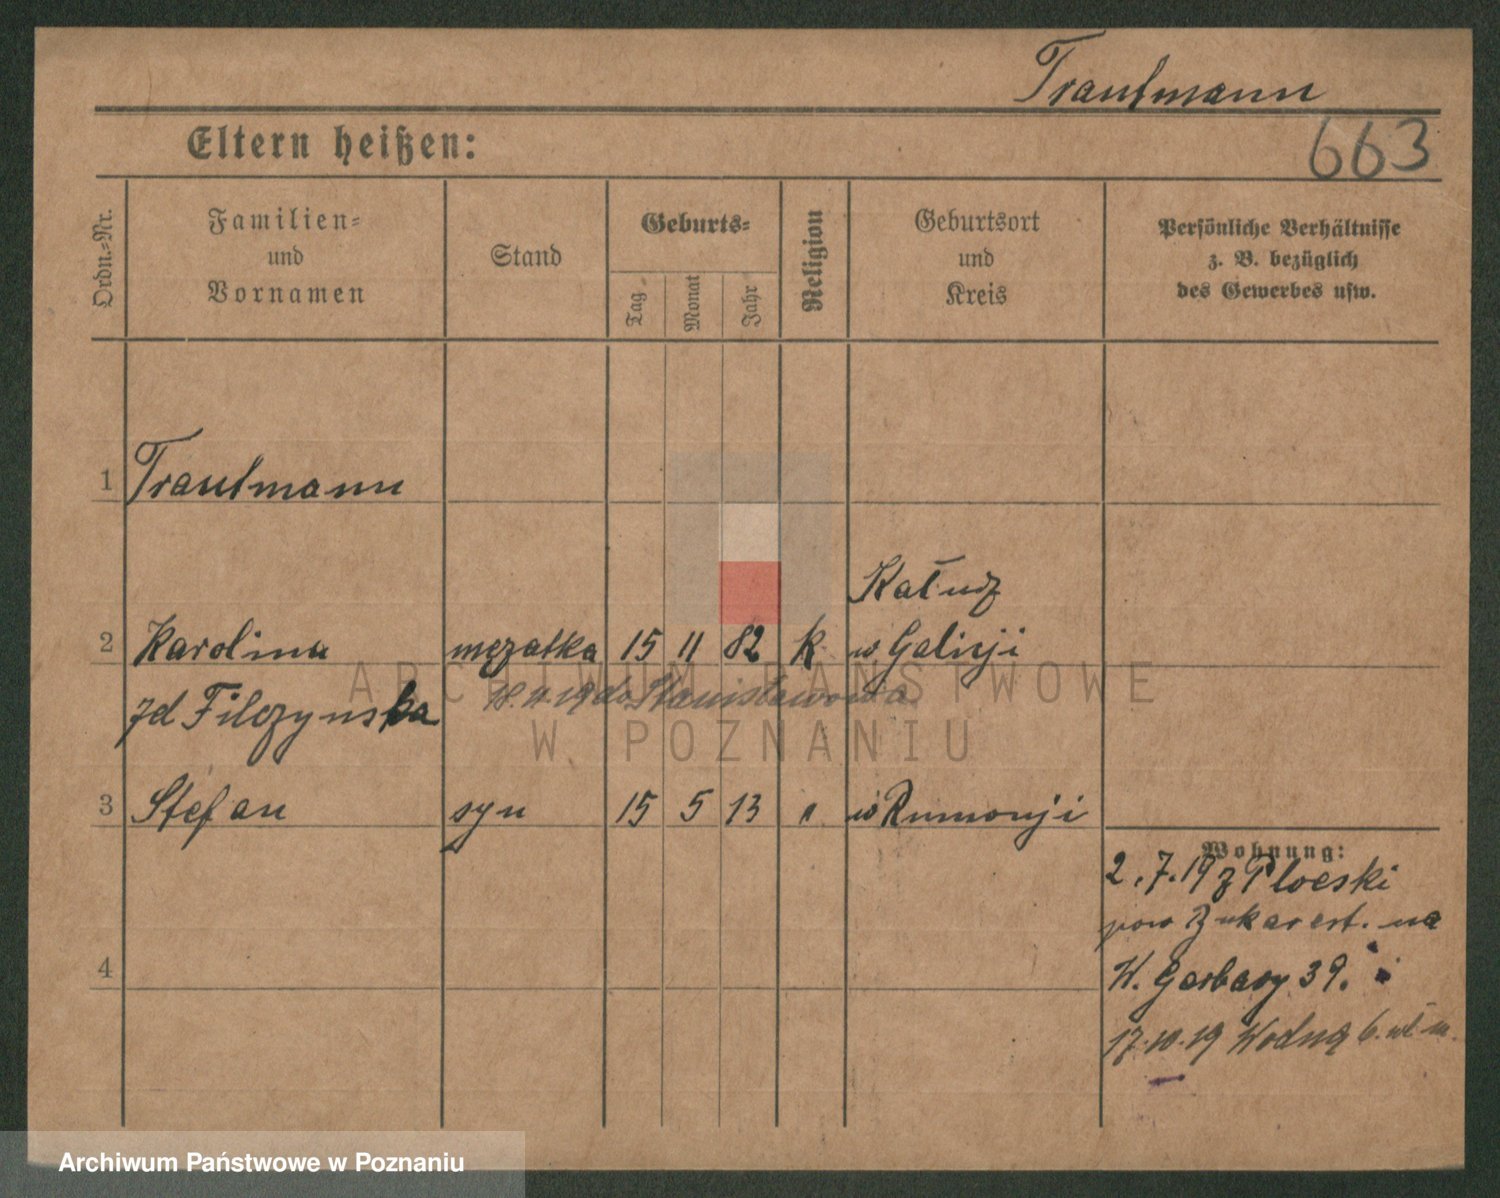 Trautmann
663
Eltern heißen:
Ordn.=Nr.
Familien=
und
Vornamen
Stand
Geburts=
Tag
Monat
Jahr
Religion
Geburtsort
und
Kreis
Persönliche Verhältnisse
z. B. bezüglich
des Gewerbes usw.
1 Trautmann
Kałudz
2 Karolina mężatka 15 11 82 k w Galicji
zd Filczynska 18.11.19 do Stanisławowa
3 Stefan syn 15 5 13 " w Rumonji
Wohnung:
2.7.19 z Ploeski
pow Bukarest. na
4 W. Garbary 39.
17.10.19 Wodną 6. wł. m.
ARCHIWUM PAŃSTWOWE
W POZNANIU
Archiwum Państwowe w Poznaniu